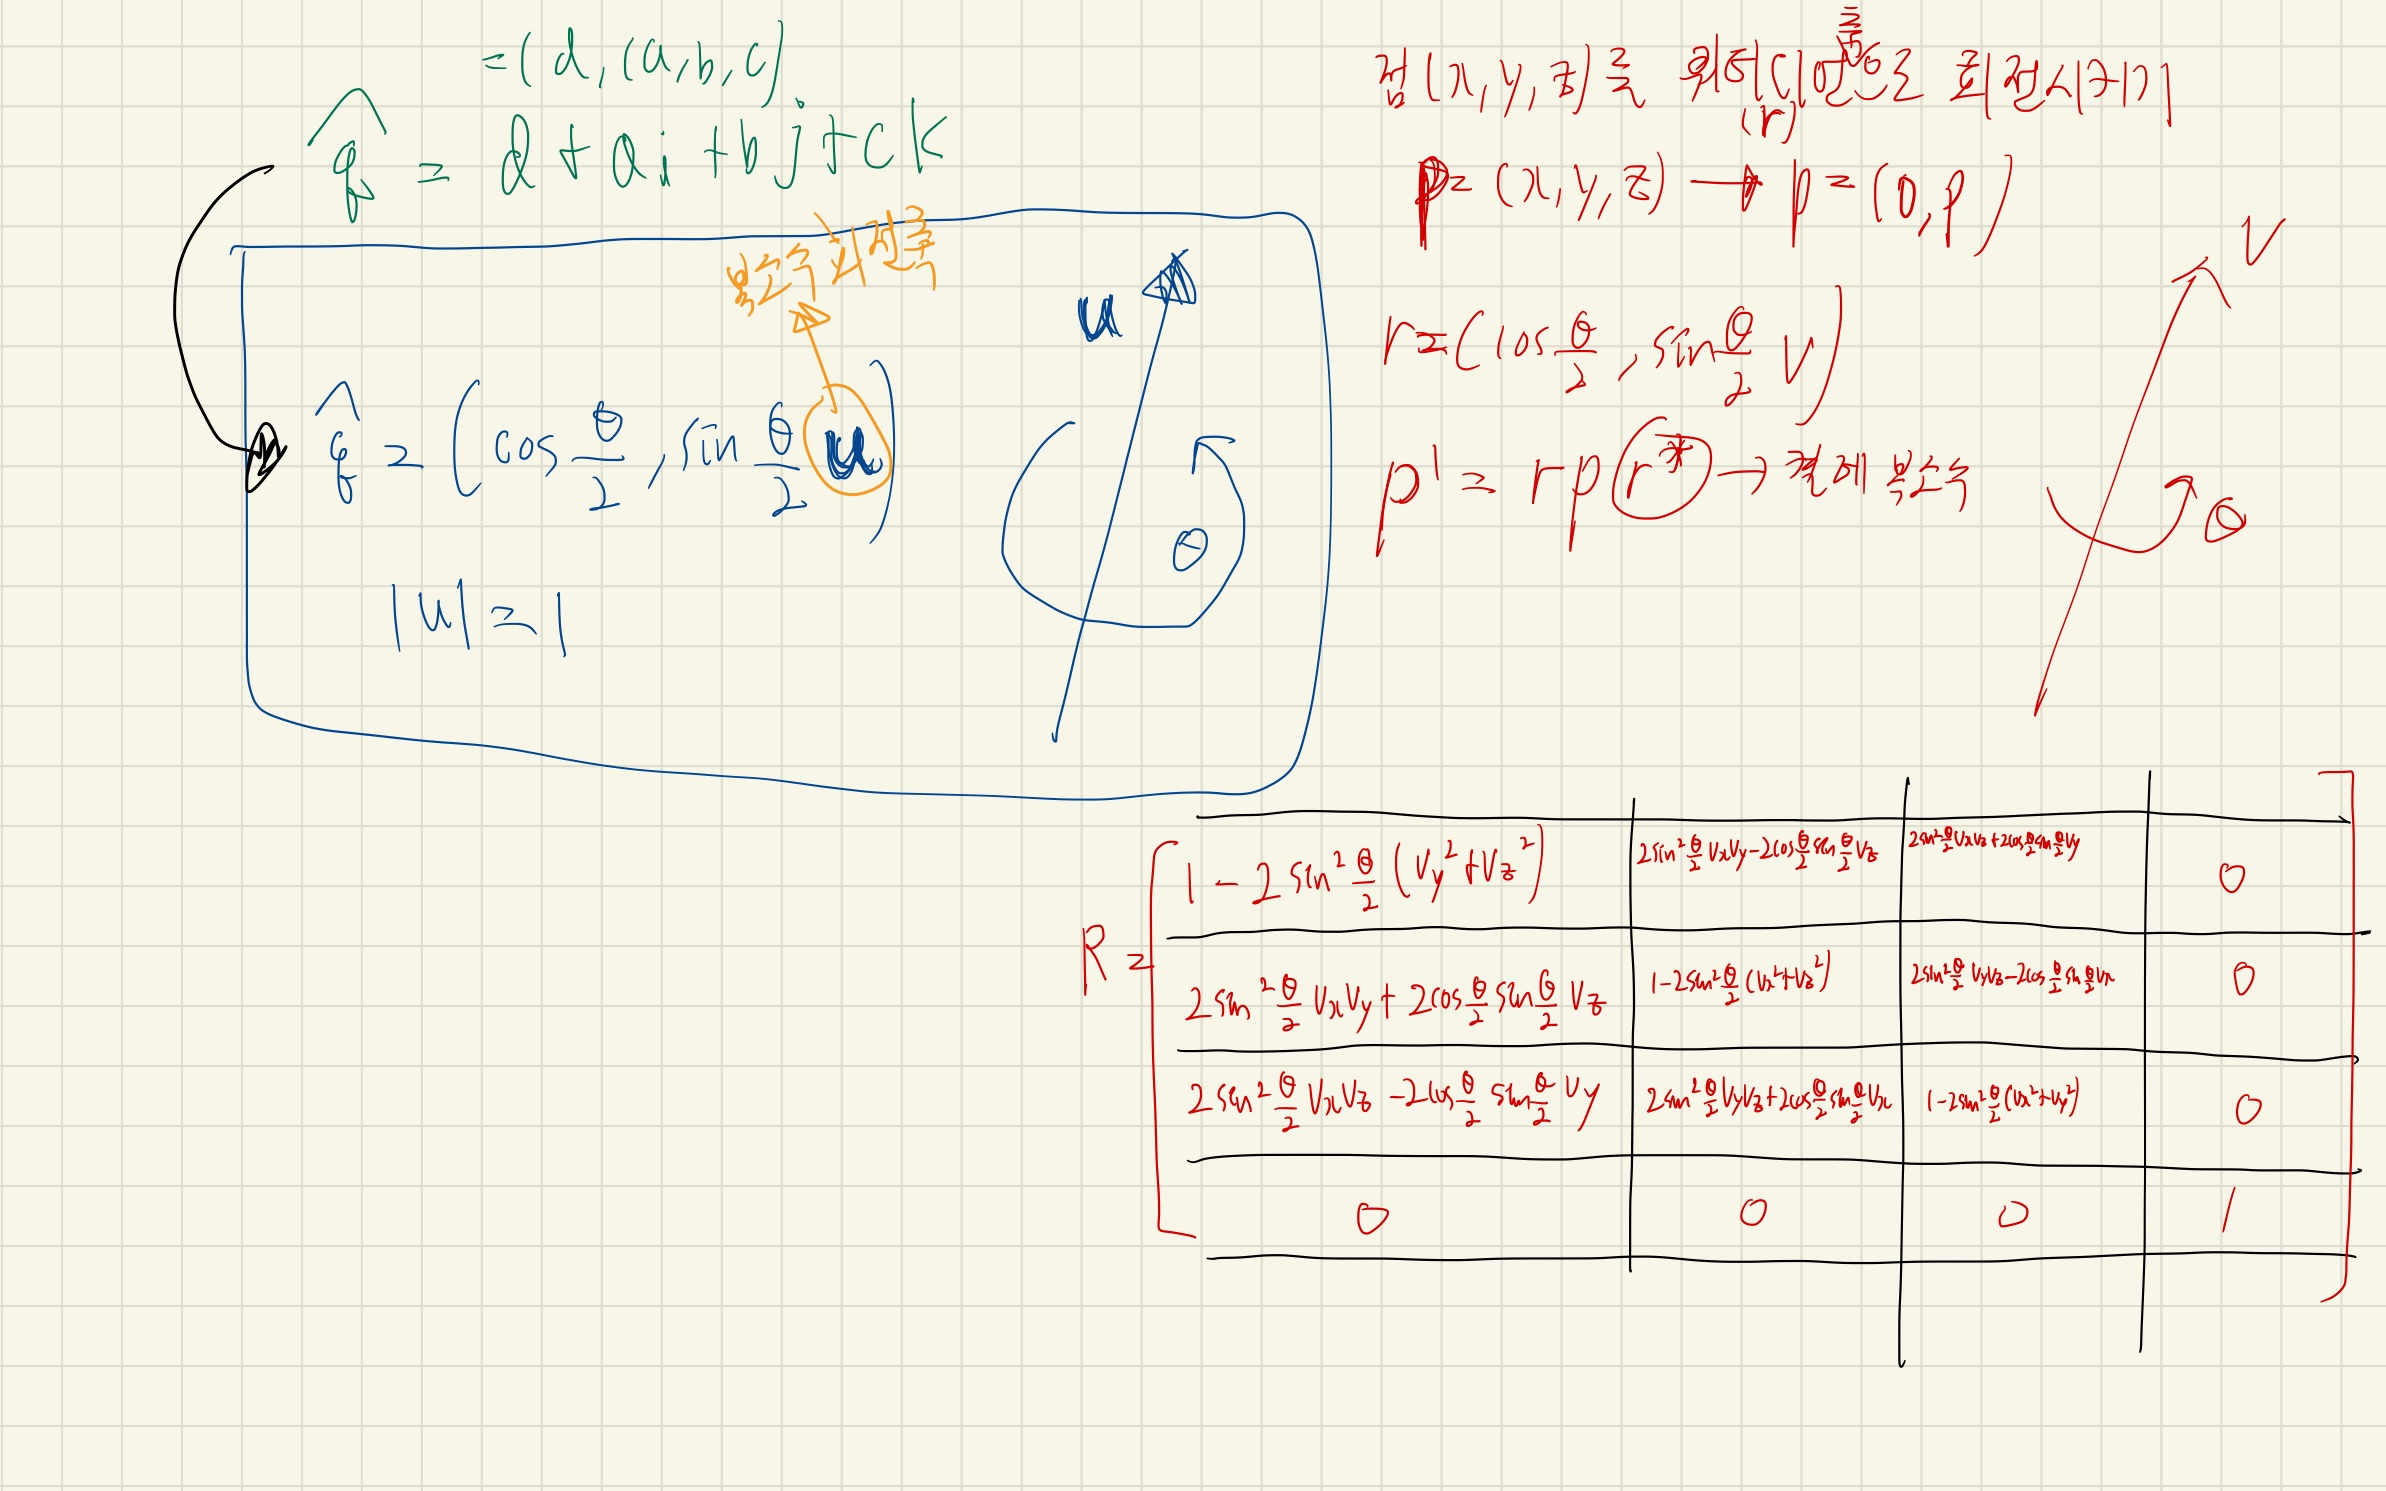 = (d, (a, b, c)
q̂ = d + ai + bj + ck
복소수 회전축
q̂ = (cos θ/2, sin θ/2 u)
u
θ
|u| = 1
점(x, y, z)를 쿼터니언(r)으로 회전시키기
p = (x, y, z) → p = (0, p)
r = (cos θ/2, sin θ/2 v)
p' = r p r* → 켤레 복소수
v
θ
R =
1 - 2 sin² θ/2 (Vy² + Vz²) 2sin² θ/2 VxVy - 2cos θ/2 sin θ/2 Vz 2sin² θ/2 VxVz + 2cos θ/2 sin θ/2 Vy 0
2 sin² θ/2 VxVy + 2cos θ/2 sin θ/2 Vz 1 - 2sin² θ/2 (Vx² + Vz²) 2sin² θ/2 VyVz - 2cos θ/2 sin θ/2 Vx 0
2 sin² θ/2 VxVz - 2cos θ/2 sin θ/2 Vy 2sin² θ/2 VyVz + 2cos θ/2 sin θ/2 Vx 1 - 2sin² θ/2 (Vx² + Vy²) 0
0 0 0 1